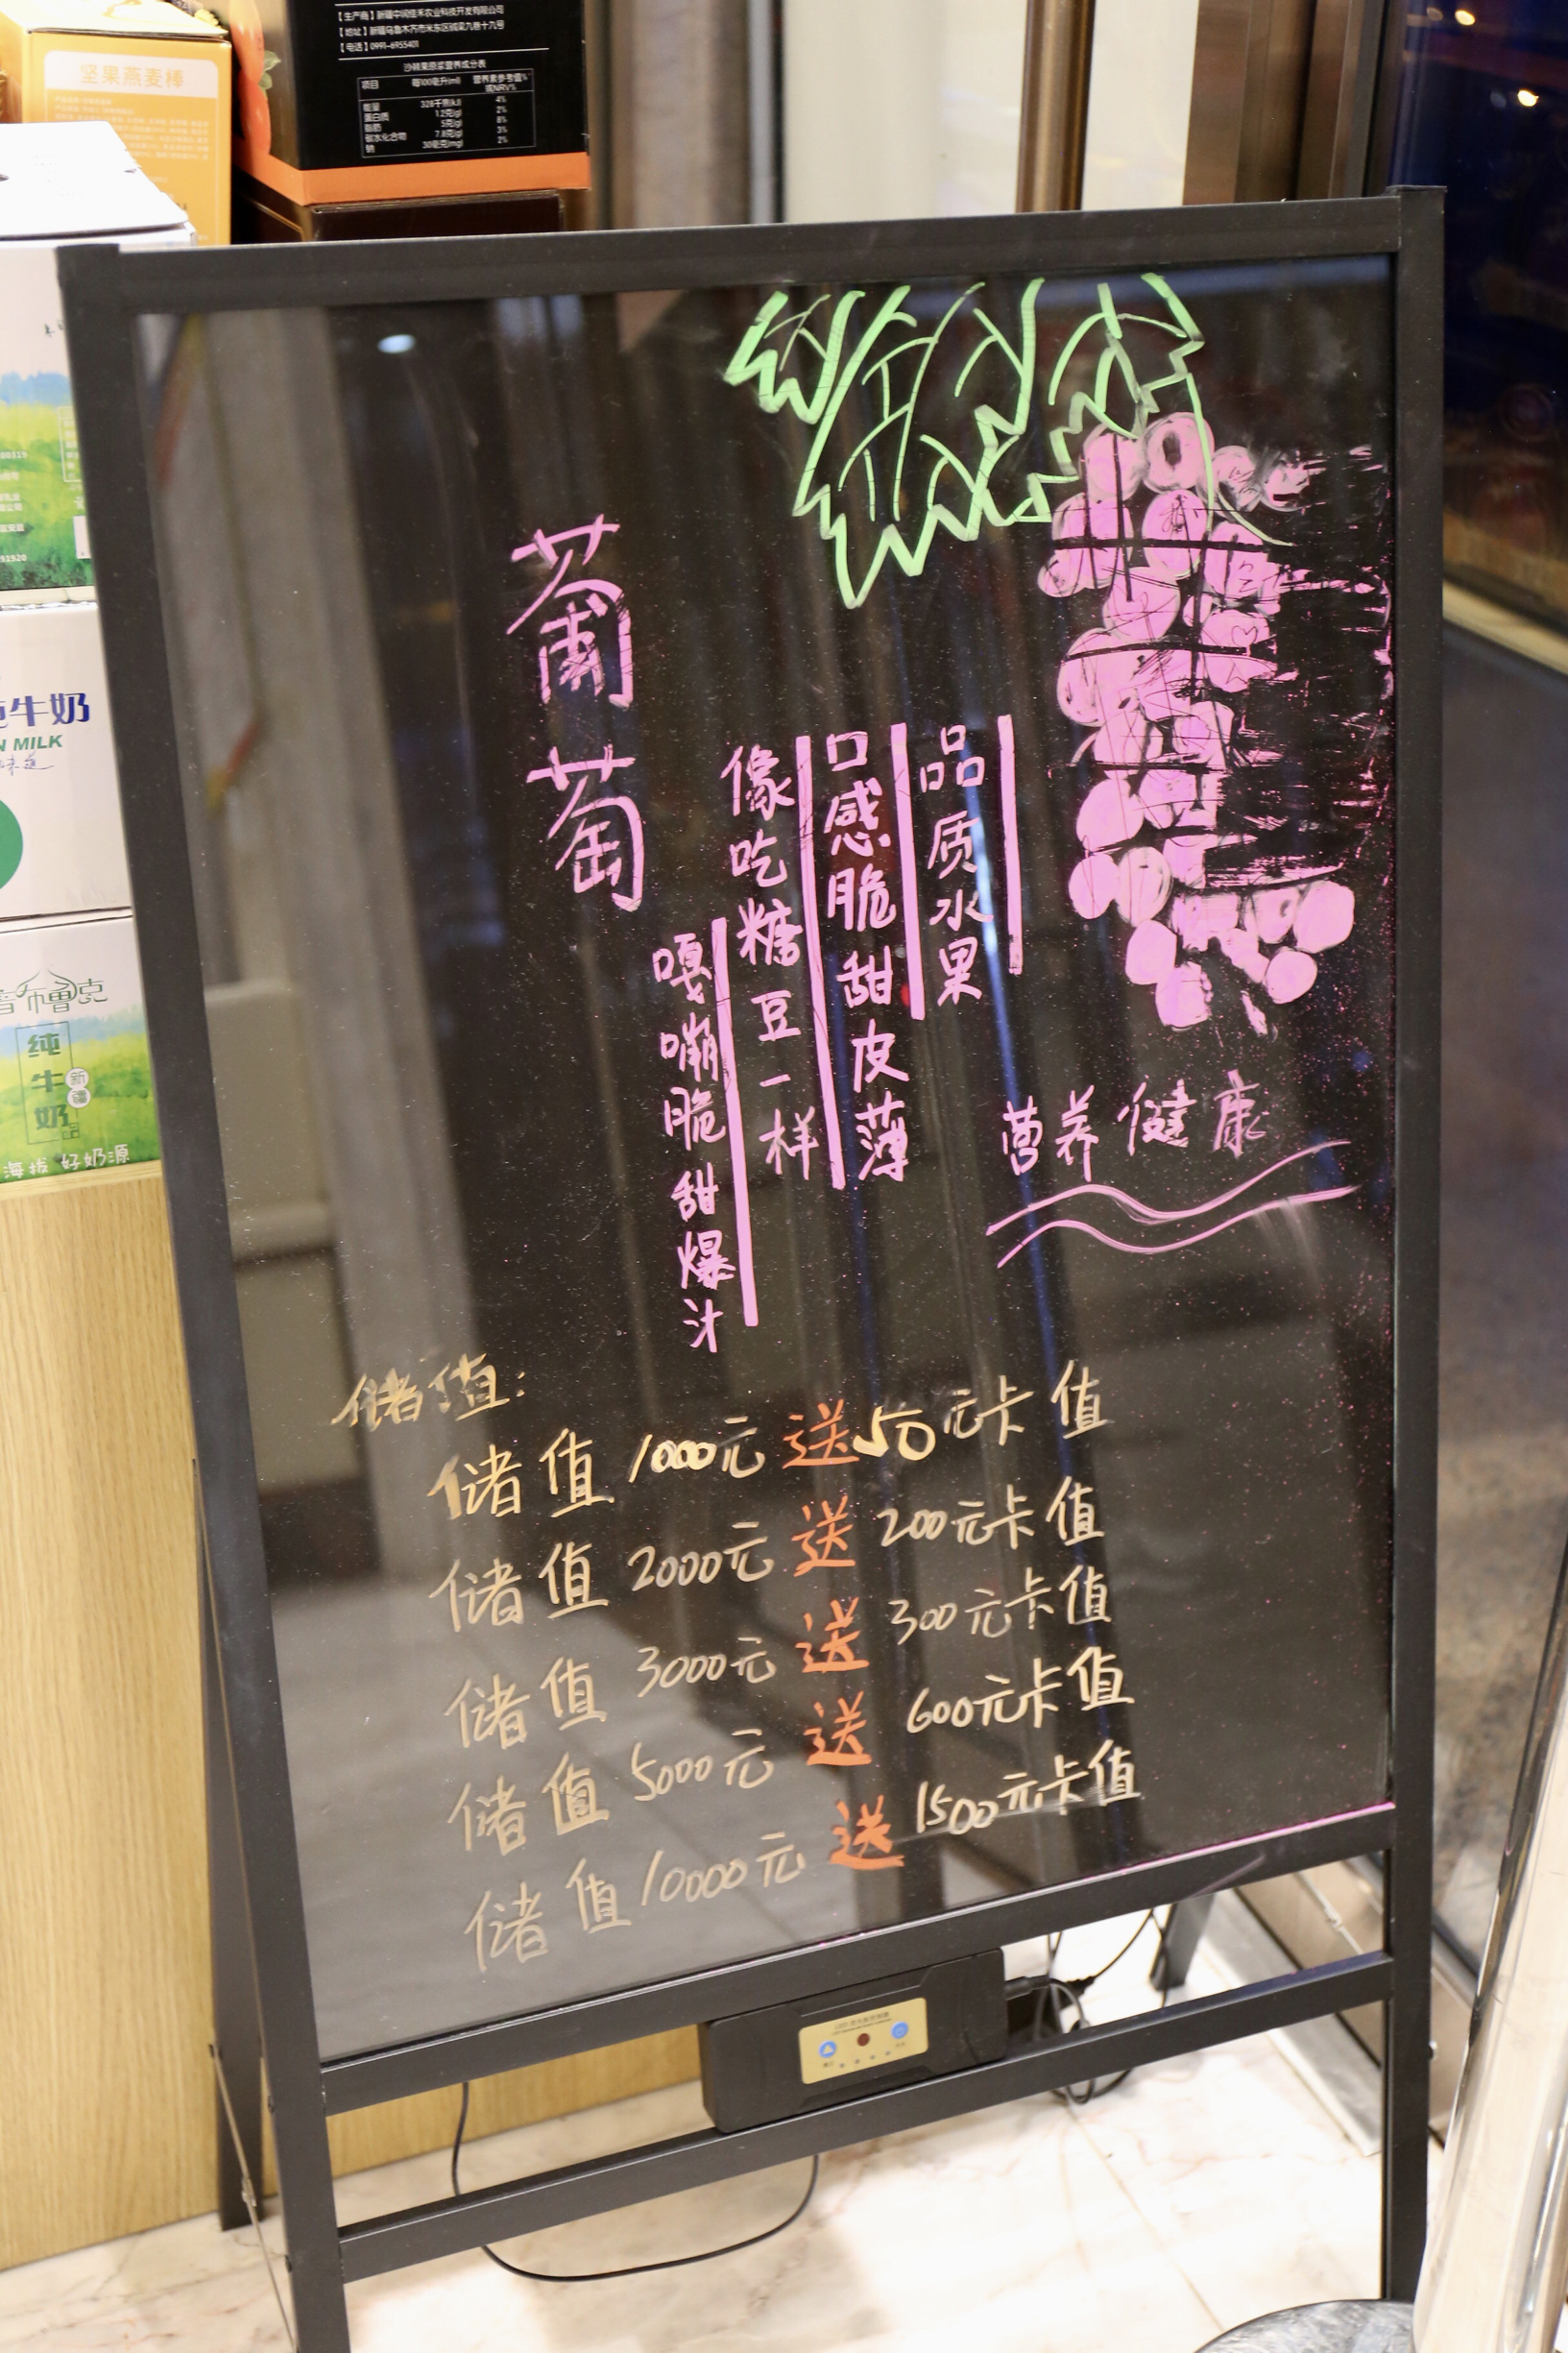 【生产商】新疆中闼佳禾农业科技开发有限公司
【电话】0991-6955401
沙棘果原浆营养成分表
项目 每100毫升(ml) 营养素参考值% 或NRV%
能量 328千焦(kJ) 4%
蛋白质 1.2克(g) 2%
脂肪 5克(g) 8%
碳水化合物 7.8克(g) 3%
钠 30毫克(mg) 2%
坚果燕麦棒
牛奶
MILK
纯牛奶
新疆
海拔 好奶源
葡萄
品质水果
口感脆甜皮薄
像吃糖豆一样
嘎嘣脆甜爆汁
营养健康
储值:
储值1000元送50元卡值
储值2000元送200元卡值
储值3000元送300元卡值
储值5000元送600元卡值
储值10000元送1500元卡值